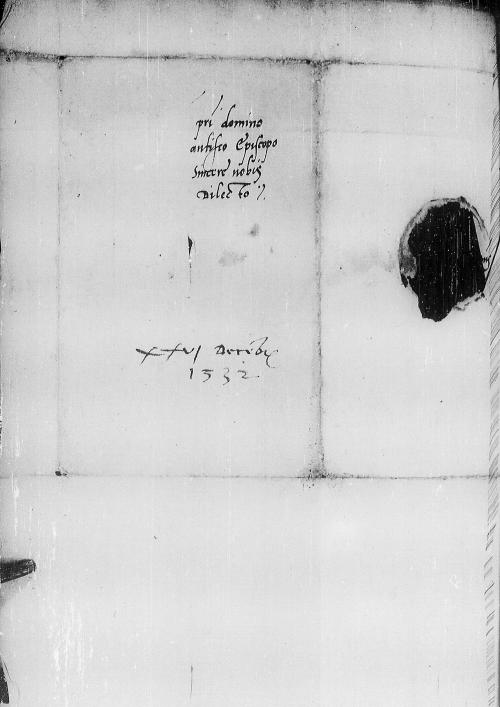 pri domino
antisco Episcopo
Sincere nobis
Dilecto
xxvj Decēbr
1532